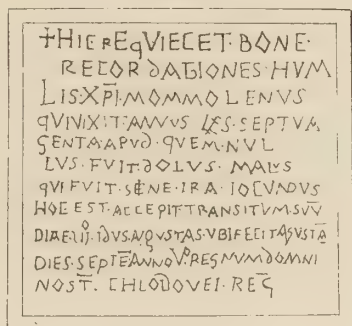 +HIC REQVIECET·BONE·
RECORDATIONES·HVM
LIS·XPI·MOMMOLENVS
QVI VIXIT·ANNVS LXS·SEPTVA
GENTA·APVD·QVEM·NVL
LVS·FVIT·DOLVS·MALVS
QVI FVIT·SENE·IRA·IOCVNDVS
HOC EST·ACCEPIT·TRANSITVM·SVV
DIAE·IDVS·AVGVSTAS·VBI FECIT AGVSTA
DIES·SEPTE ANNO V·REGNVM DOMNI
NOST·CHLODOVEI·REG